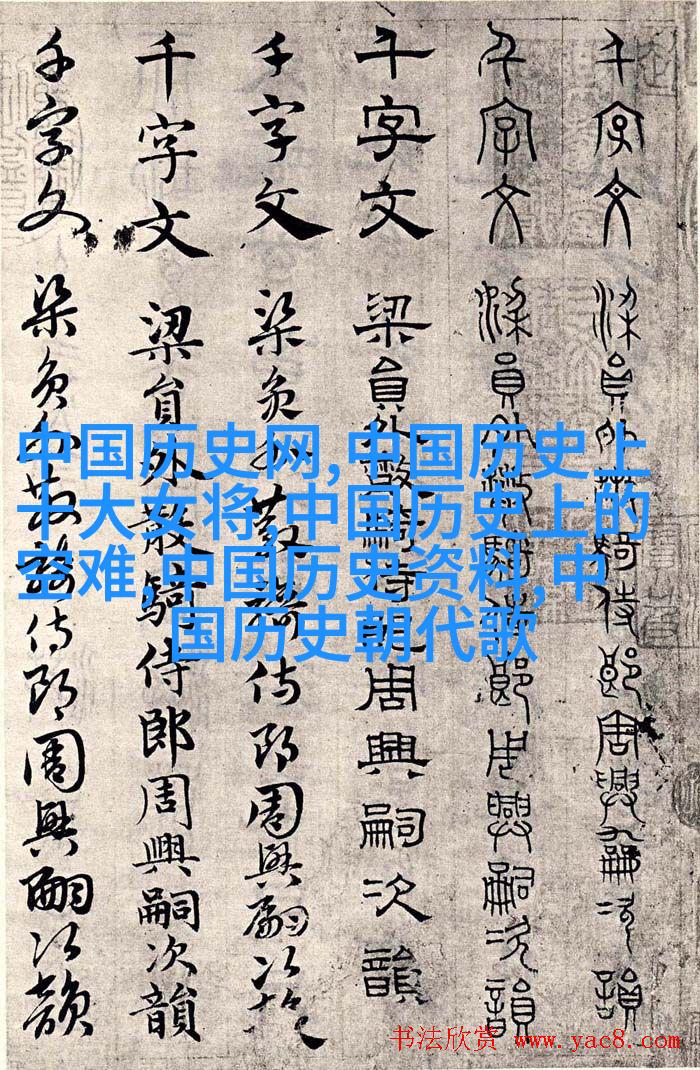 千字文 梁員外散騎侍郎周興嗣次韻
千字文 梁員外散騎侍郎周興嗣次韻
千字文 梁員外散騎侍郎周興嗣次韻
千字文 梁員外散騎侍郎周興嗣次韻
千字文 梁員外散騎侍郎周興嗣次韻
千字文 梁員外散騎侍郎周興嗣次韻
中国历史网,中国历史上
十大女将,中国历史上的
空难,中国历史资料,中
国历史朝代歌
书法欣赏 www.yac8.com